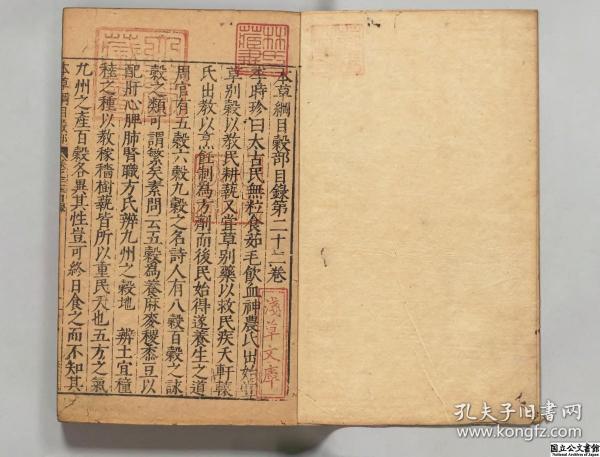 本草綱目穀部目錄第二十二卷
李時珍曰太古民無粒食茹毛飲血神農氏出始嘗
草別穀以教民耕蓺又嘗草別藥以救民疾夭軒轅
氏出教以烹飪制為方劑而後民始得遂養生之道
周官有五穀六穀九穀之名詩人有八穀百穀之詠
穀之類可謂繁矣素問云五穀為養麻麥稷黍豆以
配肝心脾肺腎職方氏辨九州之穀地 辨土宜穜
稑之種以教稼穡樹蓺皆所以重民天也五方之氣
九州之產百穀各異其性豈可終日食之而不知其
本草綱目穀部
淺草文庫
孔夫子旧书网
www.kongfz.com
国立公文書館
National Archives of Japan